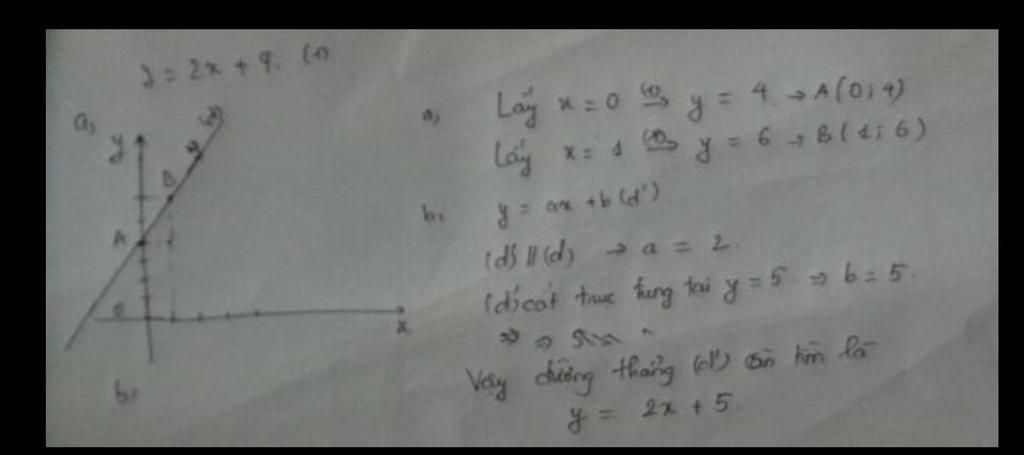 y = 2x + 4. (1)
a,
y
(d)
B
A
O
x
b,
a, Lấy x = 0 (1)⇒ y = 4 → A(0; 4)
Lấy x = 1 (1)⇒ y = 6 → B(1; 6)
b, y = ax + b (d')
(d') // (d) → a = 2.
(d') cắt trục tung tại y = 5 ⇒ b = 5.
⇒ ⇒
Vậy đường thẳng (d') cần tìm là
y = 2x + 5